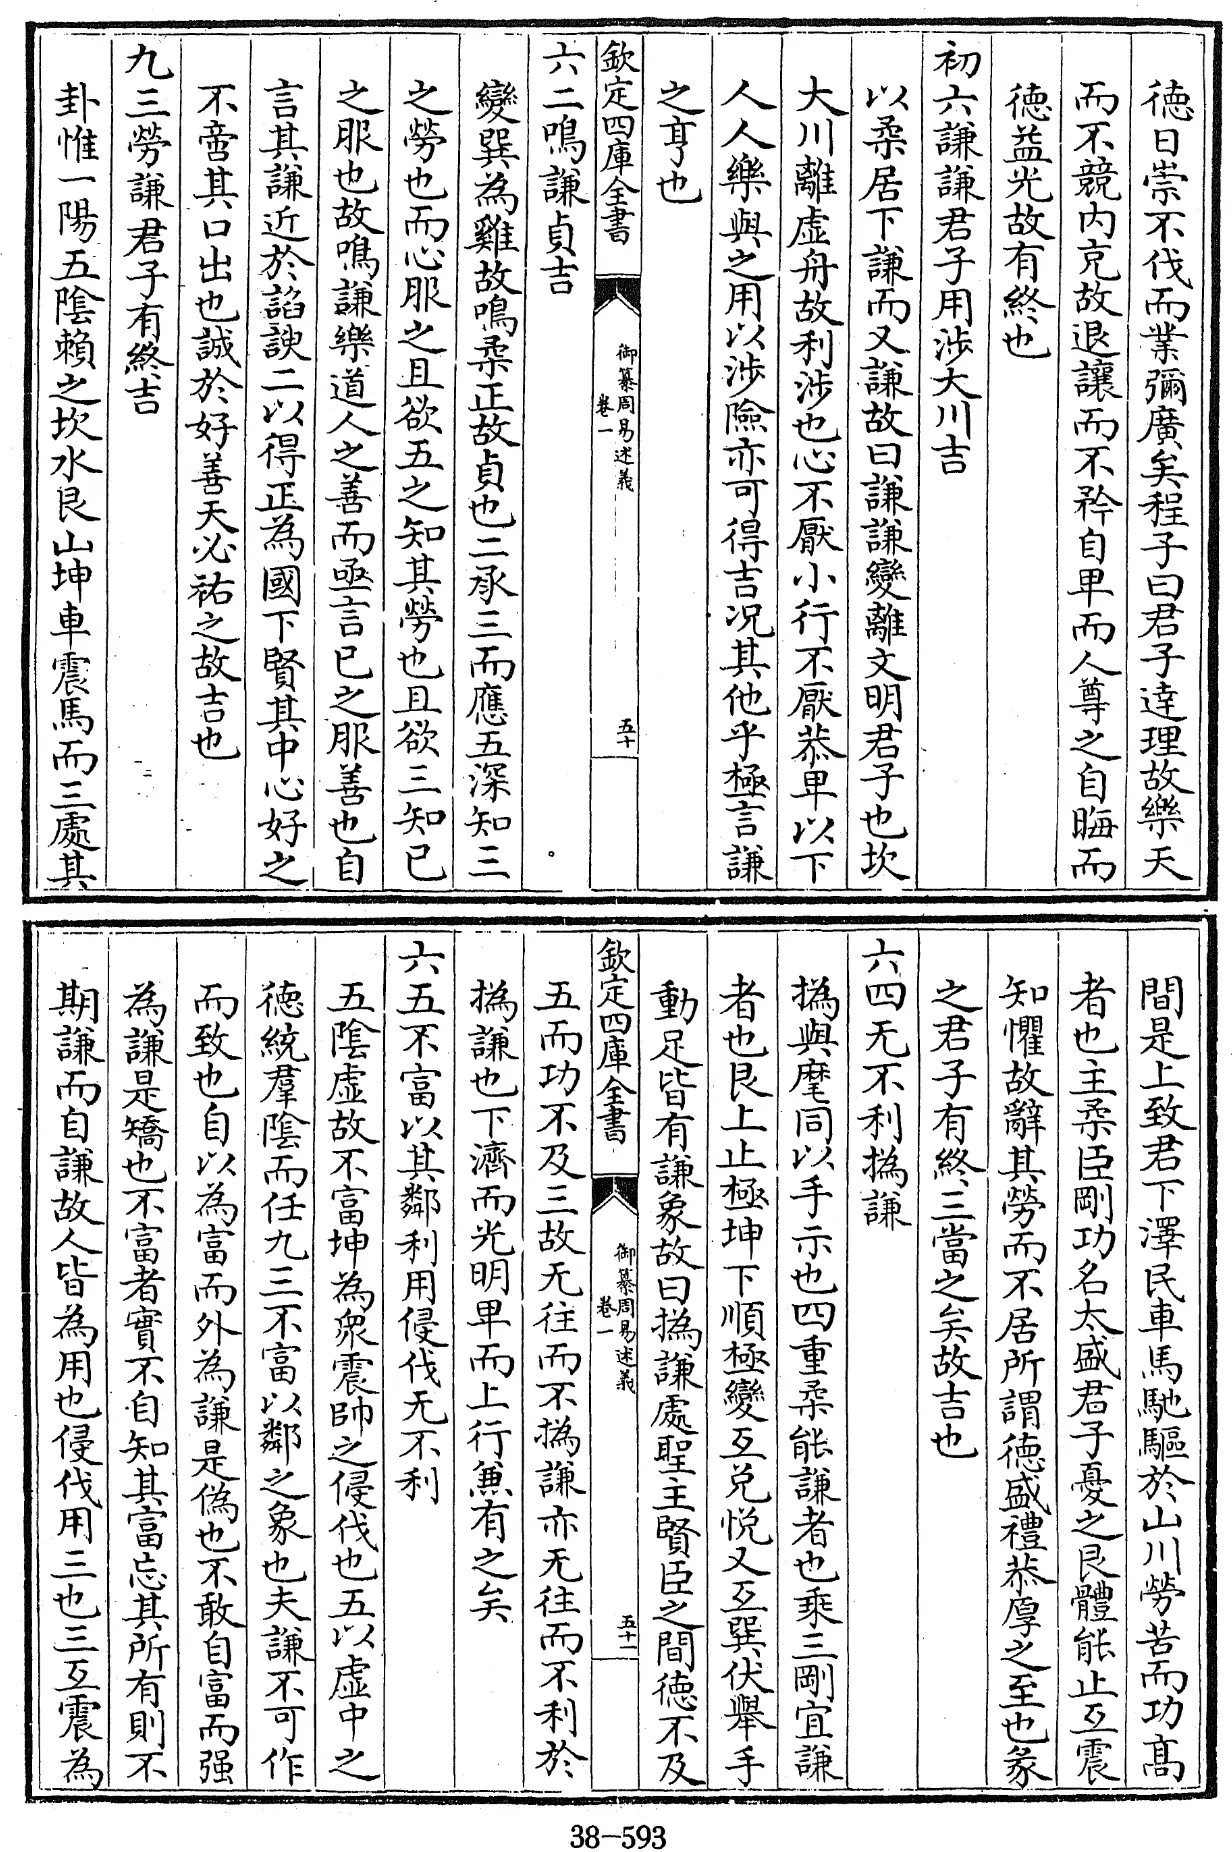 德日崇不伐而業彌廣矣程子曰君子達理故樂天
而不競内充故退讓而不矜自卑而人尊之自晦而
德益光故有終也
初六謙謙君子用涉大川吉
以柔居下謙而又謙故曰謙謙變離文明君子也坎
大川離虛舟故利涉也心不厭小行不厭恭卑以下
人人樂與之用以涉險亦可得吉况其他乎極言謙
之亨也
欽定四庫全書
御纂周易述義
卷一
五十
六二鳴謙貞吉
變巽為雞故鳴柔正故貞也二承三而應五深知三
之勞也而心服之且欲五之知其勞也且欲三知已
之服也故鳴謙樂道人之善而亟言已之服善也自
言其謙近於諂諛二以得正為國下賢其中心好之
不啻其口出也誠於好善天必祐之故吉也
九三勞謙君子有終吉
卦惟一陽五陰賴之坎水艮山坤車震馬而三處其
間是上致君下澤民車馬馳驅於山川勞苦而功髙
者也主柔臣剛功名太盛君子憂之艮體能止互震
知懼故辭其勞而不居所謂德盛禮恭厚之至也彖
之君子有終三當之矣故吉也
六四无不利撝謙
撝與麾同以手示也四重柔能謙者也乘三剛宜謙
者也艮上止極坤下順極變互兌悅又互巽伏舉手
動足皆有謙象故曰撝謙處聖主賢臣之間德不及
欽定四庫全書
御纂周易述義
卷一
五十一
五而功不及三故无往而不撝謙亦无往而不利於
撝謙也下濟而光明卑而上行兼有之矣
六五不富以其鄰利用侵伐无不利
五陰虛故不富坤為衆震帥之侵伐也五以虛中之
德統羣陰而任九三不富以鄰之象也夫謙不可作
而致也自以為富而外為謙是偽也不敢自富而强
為謙是矯也不富者實不自知其富忘其所有則不
期謙而自謙故人皆為用也侵伐用三也三互震為
38-593